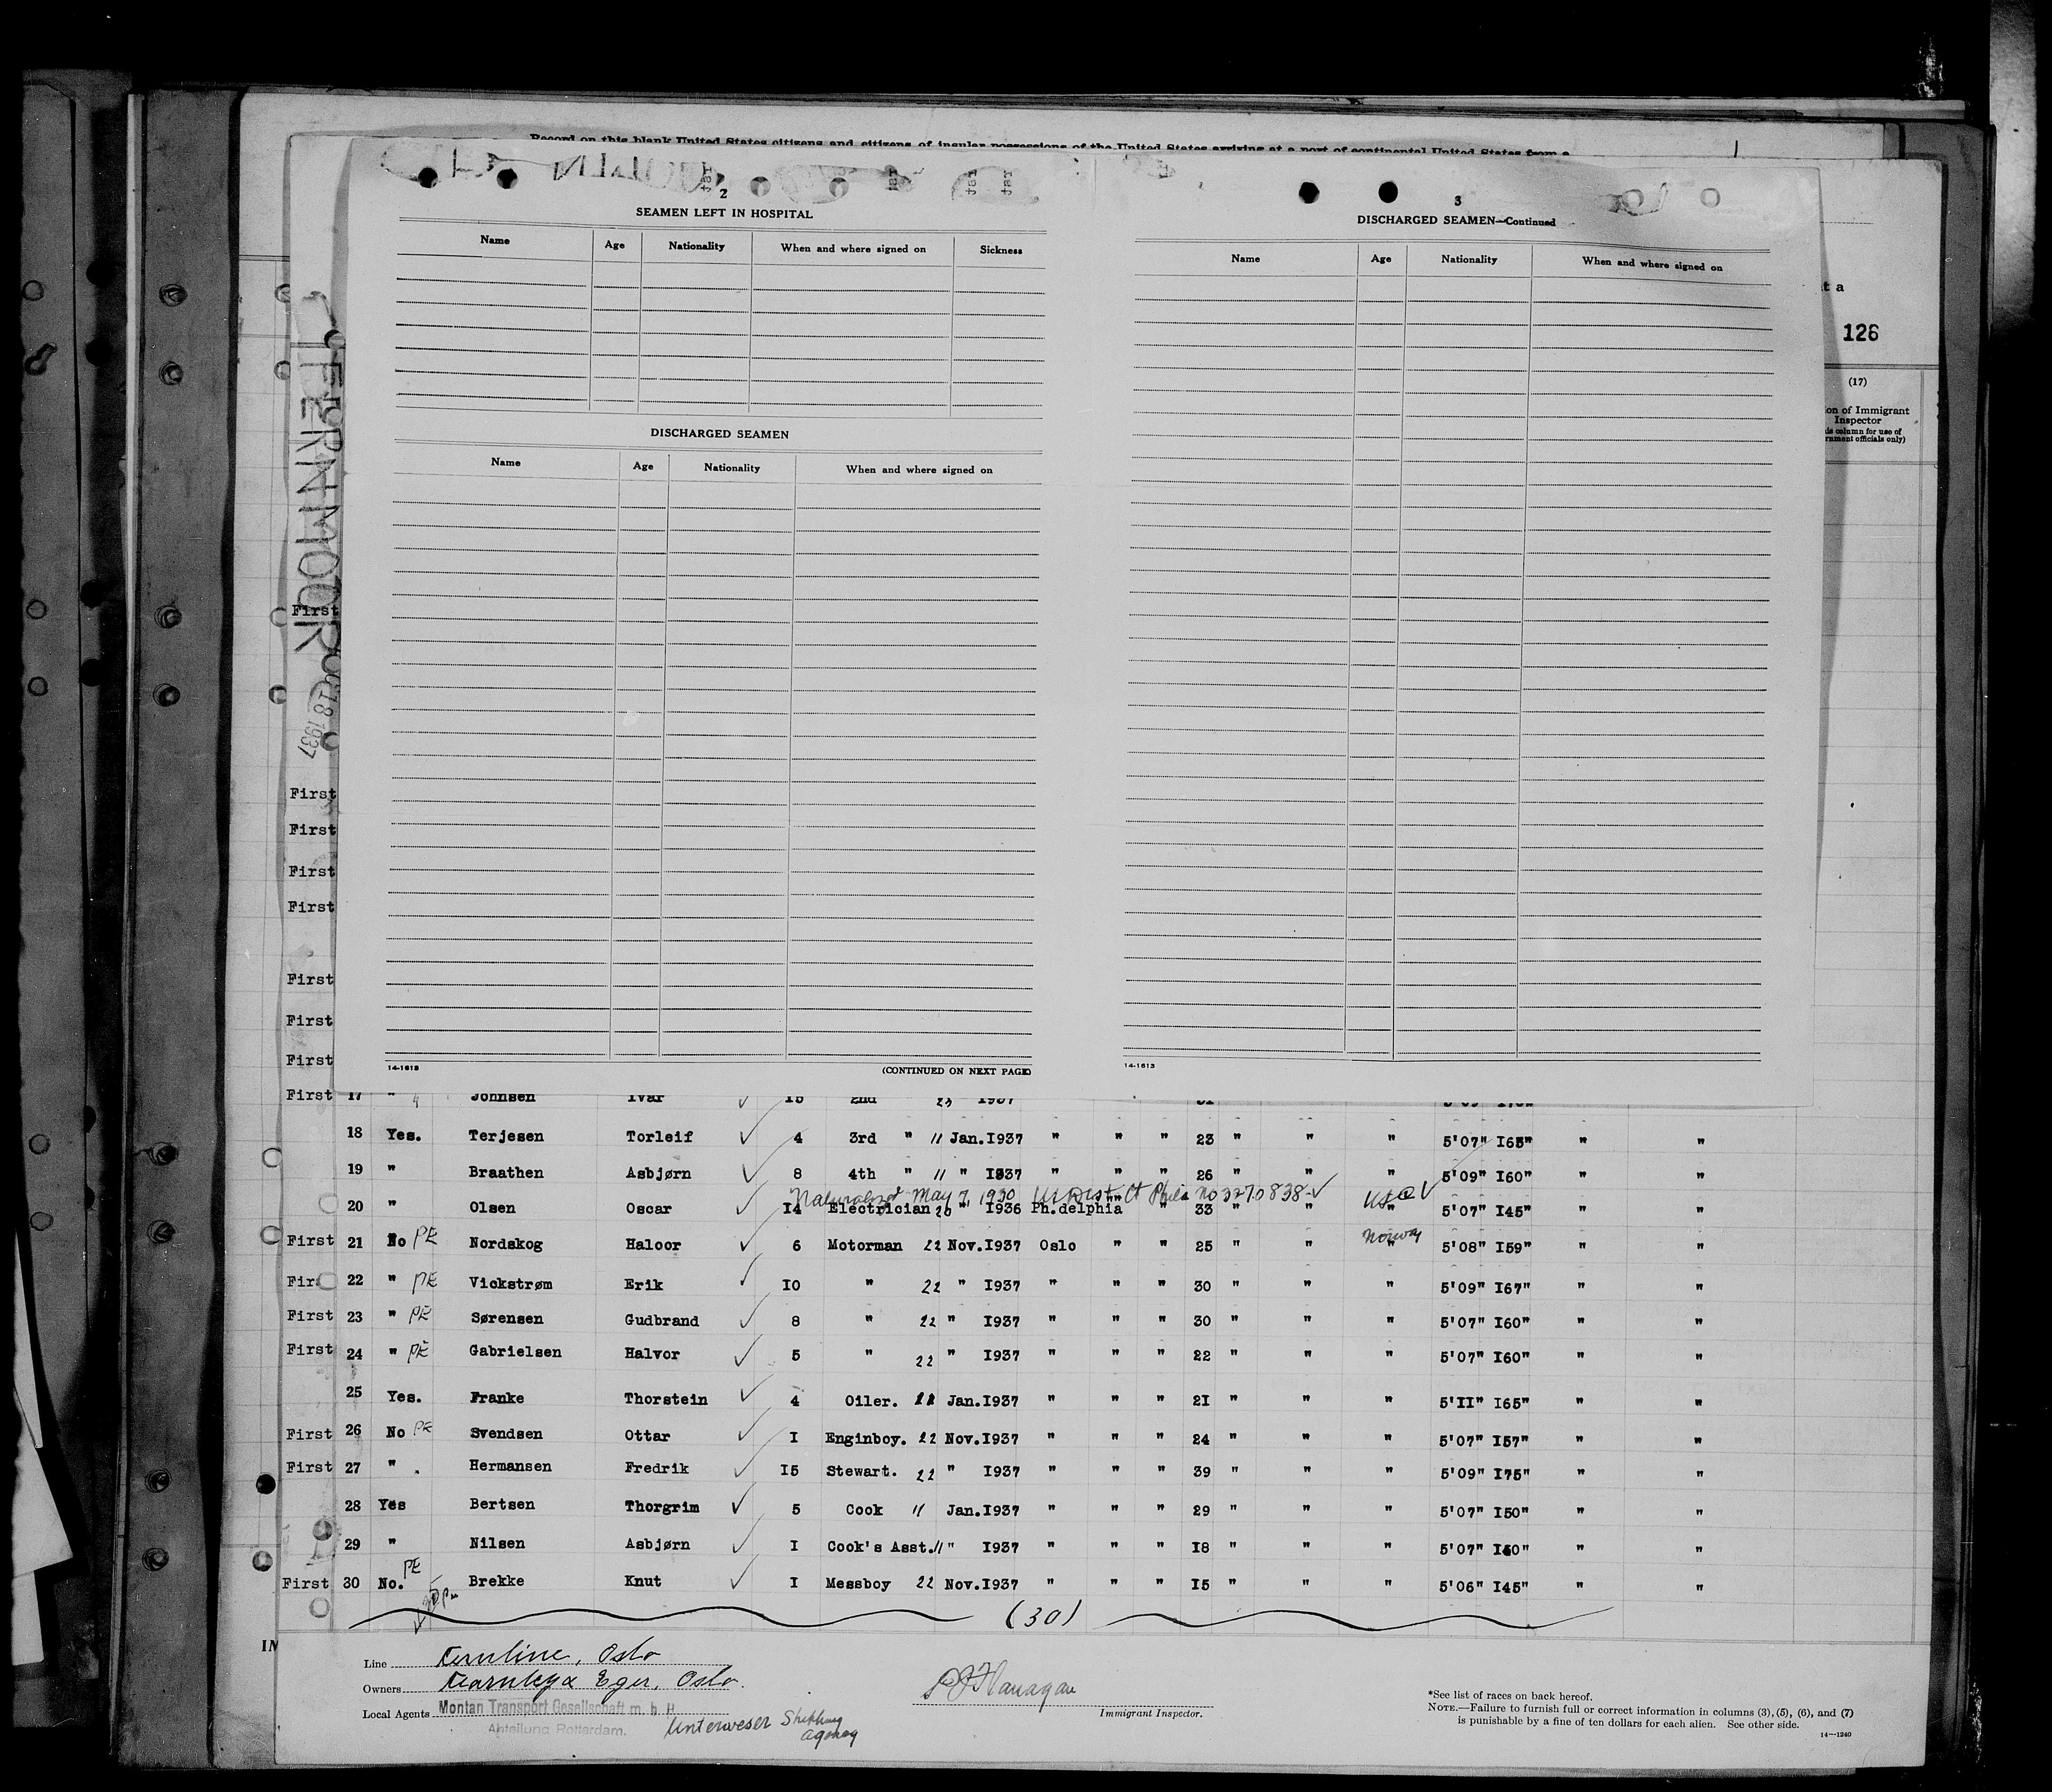 Record on this blank United States citizens and citizens of insular possessions of the United States arriving at a port of continental United States from a
2
SEAMEN LEFT IN HOSPITAL
Name Age Nationality When and where signed on Sickness
DISCHARGED SEAMEN
Name Age Nationality When and where signed on
14-1613 (CONTINUED ON NEXT PAGE)
3
DISCHARGED SEAMEN—Continued
Name Age Nationality When and where signed on
14-1613
t a
126
(17)
ion of Immigrant
Inspector
is column for use of
rnment officials only)
FERNMOOR
18 1937
First
First
First
First
First
First
First
First
First 17 " Johnsen Ivar 15 2nd 23 1937
18 Yes. Terjesen Torleif ✓ 4 3rd " 11 Jan. I937 " " " 23 " " " 5'07" I65" " "
19 " Braathen Asbjørn ✓ 8 4th " 11 " I937 " " " 26 " " " 5'09" I60" " "
Naturalized May 7, 1930 US Dist Ct Phila No 3270838 ✓ USC ✓
20 " Olsen Oscar ✓ I4 Electrician 20 " I936 Ph.delphia " 33 " " 5'07" I45" " "
First 21 No PE Nordskog Haloor ✓ 6 Motorman 22 Nov. I937 Oslo " " 25 " " Norway " 5'08" I59" " "
Fir 22 " PE Vickstrøm Erik ✓ I0 " 22 " I937 " " " 30 " " " 5'09" I67" " "
First 23 " PE Sørensen Gudbrand ✓ 8 " 22 " I937 " " " 30 " " " 5'07" I60" " "
First 24 " PE Gabrielsen Halvor ✓ 5 " 22 " I937 " " " 22 " " " 5'07" I60" " "
25 Yes. Franke Thorstein ✓ 4 Oiler. 11 Jan. I937 " " " 2I " " " 5'II" I65" " "
First 26 No PE Svendsen Ottar ✓ I Enginboy. 22 Nov. I937 " " " 24 " " " 5'07" I57" " "
First 27 " . Hermansen Fredrik ✓ I5 Stewart. 22 " I937 " " " 39 " " " 5'09" I75" " "
28 Yes Bertsen Thorgrim ✓ 5 Cook 11 Jan. I937 " " " 29 " " " 5'07" I50" " "
29 " Nilsen Asbjørn ✓ I Cook's Asst. 11 " I937 " " " I8 " " " 5'07" I40" " "
First 30 No. PE Brekke Knut ✓ I Messboy 22 Nov. I937 " " " I5 " " " 5'06" I45" " "
(30)
IM
Line Fernline, Oslo
Owners Fearnley & Eger, Oslo.
Local Agents Montan Transport Gesellschaft m. b. H.
Abteilung Rotterdam.
Unterweser
Immigrant Inspector.
*See list of races on back hereof.
NOTE.—Failure to furnish full or correct information in columns (3), (5), (6), and (7)
is punishable by a fine of ten dollars for each alien. See other side.
14—1240